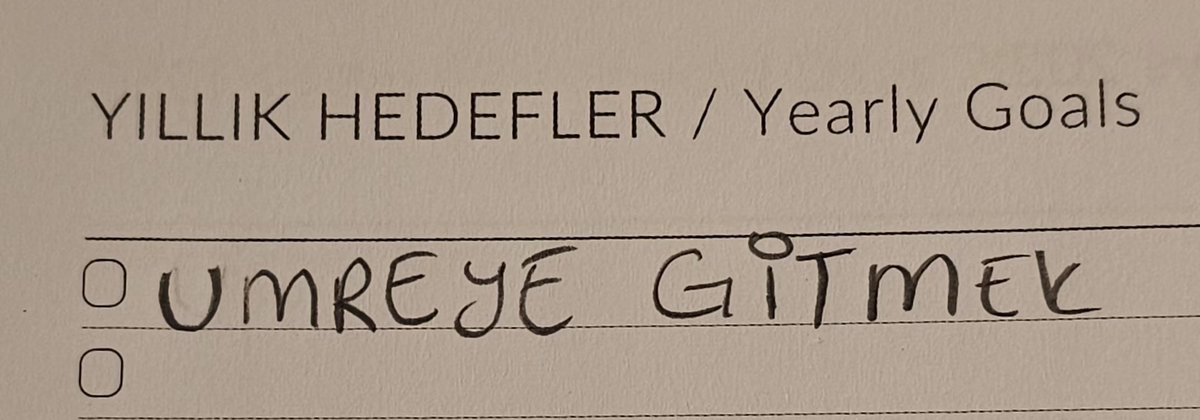 YILLIK HEDEFLER / Yearly Goals
UMREYE GİTMEK